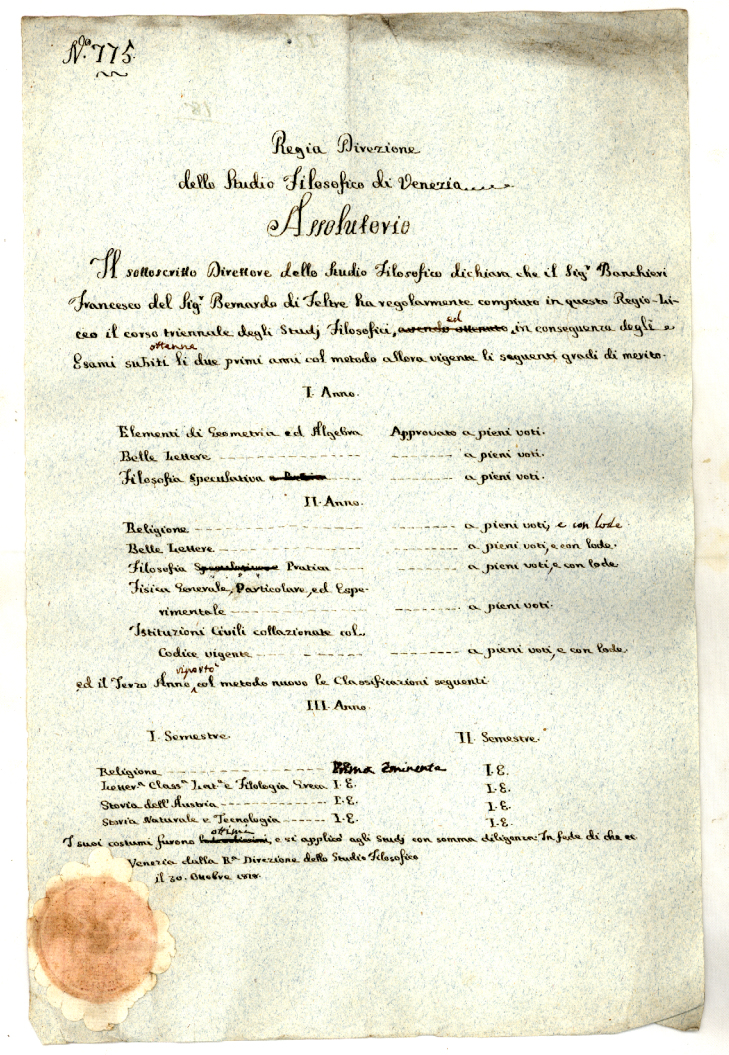 N.º 775.
Regia Direzione
dello Studio Filosofico di Venezia
Assolutorio
Il sottoscritto Direttore dello Studio Filosofico dichiara che il Sigr Banchieri
Francesco del Sigr Bernardo di Feltre ha regolarmente compiuto in questo Regio-Li-
ceo il corso triennale degli Studj Filosofici, avendo ottenuto, ed in conseguenza degli
Esami subiti ottenne li due primi anni col metodo allora vigente li seguenti gradi di merito.
I. Anno.
Elementi di Geometria ed Algebra Approvato a pieni voti.
Belle Lettere a pieni voti.
Filosofia Speculativa a pieni voti.
II. Anno.
Religione a pieni voti, e con lode
Belle Lettere a pieni voti, e con lode.
Filosofia Pratica a pieni voti, e con lode
Fisica Generale, Particolare, ed Espe-
rimentale a pieni voti.
Istituzioni Civili collazionate col
Codice vigente a pieni voti, e con lode.
ed il Terzo Anno riportò col metodo nuovo le Classificazioni seguenti.
III. Anno.
I. Semestre. II. Semestre.
Religione Prima Eminente I. E.
Letter.ª Class.ª Lat.ª e Filologia Greca I. E. I. E.
Storia dell'Austria I. E. I. E.
Storia Naturale e Tecnologia I. E. I. E.
I suoi costumi furono ottimi, e si applicò agli Studj con somma diligenza. In fede di che ec
Venezia dalla R.ª Direzione dello Studio Filosofico
il 30. Ottobre 1818.